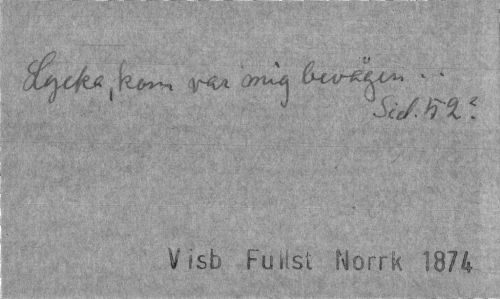 Lycka, kom var mig bevågen ..
Sid. 52.
Visb Fullst Norrk 1874